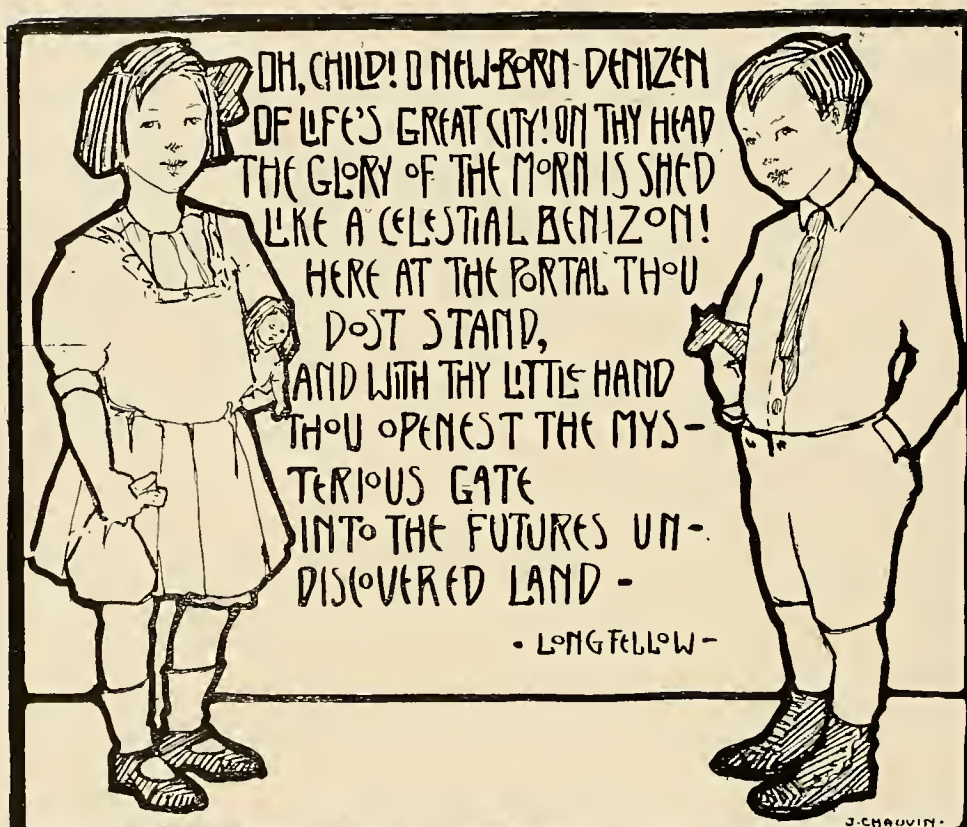 OH, CHILD! O NEW-BORN DENIZEN
OF LIFE'S GREAT CITY! ON THY HEAD
THE GLORY OF THE MORN IS SHED
LIKE A CELESTIAL BENIZON!
HERE AT THE PORTAL THOU
DOST STAND,
AND WITH THY LITTLE HAND
THOU OPENEST THE MYS-
TERIOUS GATE
INTO THE FUTURES UN-
DISCOVERED LAND -
- LONGFELLOW -
J. CHAUVIN.